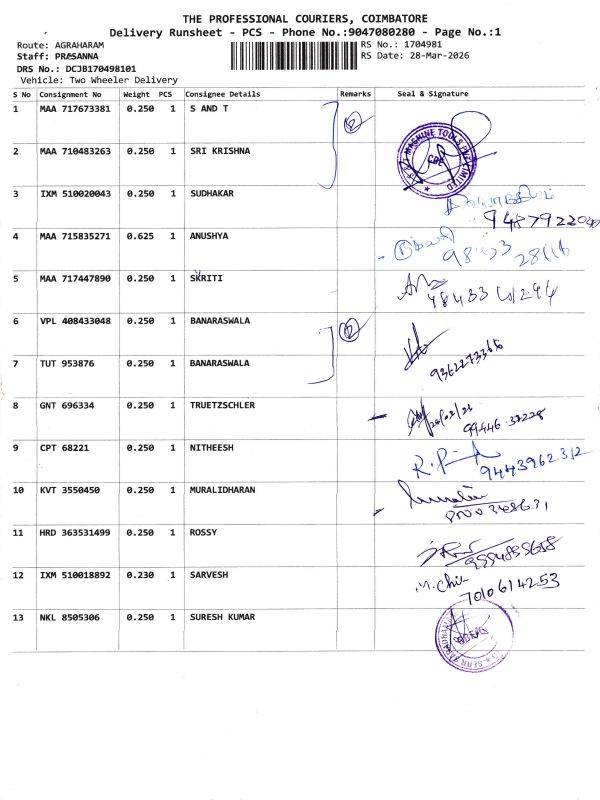 THE PROFESSIONAL COURIERS, COIMBATORE
Delivery Runsheet - PCS - Phone No.:9047080280 - Page No.:1
Route: AGRAHARAM
RS No.: 1704981
Staff: PRASANNA
RS Date: 28-Mar-2026
DRS No.: DCJB170498101
Vehicle: Two Wheeler Delivery
S No Consignment No Weight PCS Consignee Details Remarks Seal & Signature
1 MAA 717673381 0.250 1 S AND T
2 MAA 710483263 0.250 1 SRI KRISHNA
3 IXM 510020043 0.250 1 SUDHAKAR
4 MAA 715835271 0.625 1 ANUSHYA
5 MAA 717447890 0.250 1 SKRITI
6 VPL 408433048 0.250 1 BANARASWALA
9362273366
7 TUT 953876 0.250 1 BANARASWALA
8 GNT 696334 0.250 1 TRUETZSCHLER
99446 37228
9 CPT 68221 0.250 1 NITHEESH
9443962312
10 KVT 3550450 0.250 1 MURALIDHARAN
11 HRD 363531499 0.250 1 ROSSY
12 IXM 510018892 0.230 1 SARVESH
7010614253
13 NKL 8505306 0.250 1 SURESH KUMAR